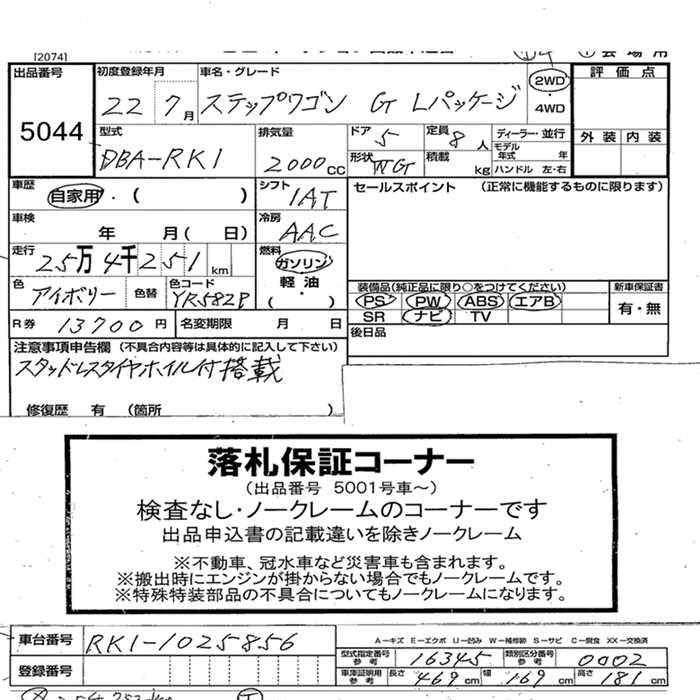 [2074]
会場用
出品番号
5044
初度登録年月
22 7月
車名・グレード
ステップワゴン G Lパッケージ
2WD
・
4WD
評価点
外装 内装
型式
DBA-RK1
排気量
2000cc
ドア 5
定員 8人
形状 WG
積載 kg
ディーラー・並行
モデル年式 年
ハンドル 左・右
車歴
自家用・( )
シフト
IAT
セールスポイント (正常に機能するものに限ります)
車検
年 月(日)
冷房
AAC
走行
25万4千251km
燃料
ガソリン
軽油・
( )
色
アイボリー
色替
色コード
YR582P
装備品(純正品に限り○をつけてください)
PS PW ABS エアB
SR ナビ TV
新車保証書
有・無
R券 13700円
名変期限 月 日
後日品
注意事項申告欄 (不具合内容等は具体的に記入して下さい)
スタッドレスタイヤホイル付搭載
修復歴 有 (箇所 )
落札保証コーナー
(出品番号 5001号車~)
検査なし・ノークレームのコーナーです
出品申込書の記載違いを除きノークレーム
※不動車、冠水車など災害車も含まれます。
※搬出時にエンジンが掛からない場合でもノークレームです。
※特殊特装部品の不具合についてもノークレームになります。
車台番号 RK1-1025856
登録番号
A-キズ E-エクボ U-凹み W-補修跡 S-サビ C-腐食 XX-交換済
型式指定番号参考 16345
類別区分番号参考 0002
車庫証明用参考 長さ 469cm 幅 169cm 高さ 181cm